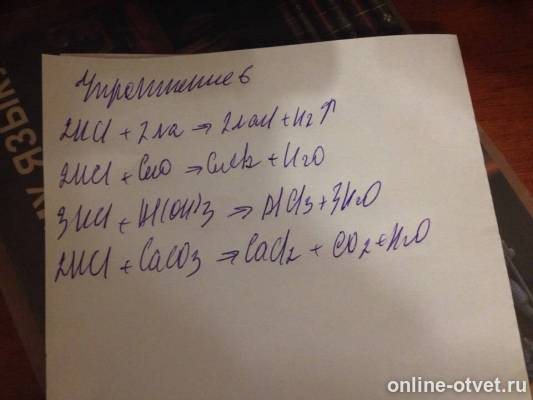 Упражнение 6
2HCl + 2Na => 2NaCl + H2↑
2HCl + CuO => CuCl2 + H2O
3HCl + Al(OH)3 => AlCl3 + 3H2O
2HCl + CaCO3 => CaCl2 + CO2 + H2O
ЯЗЫК
online-otvet.ru